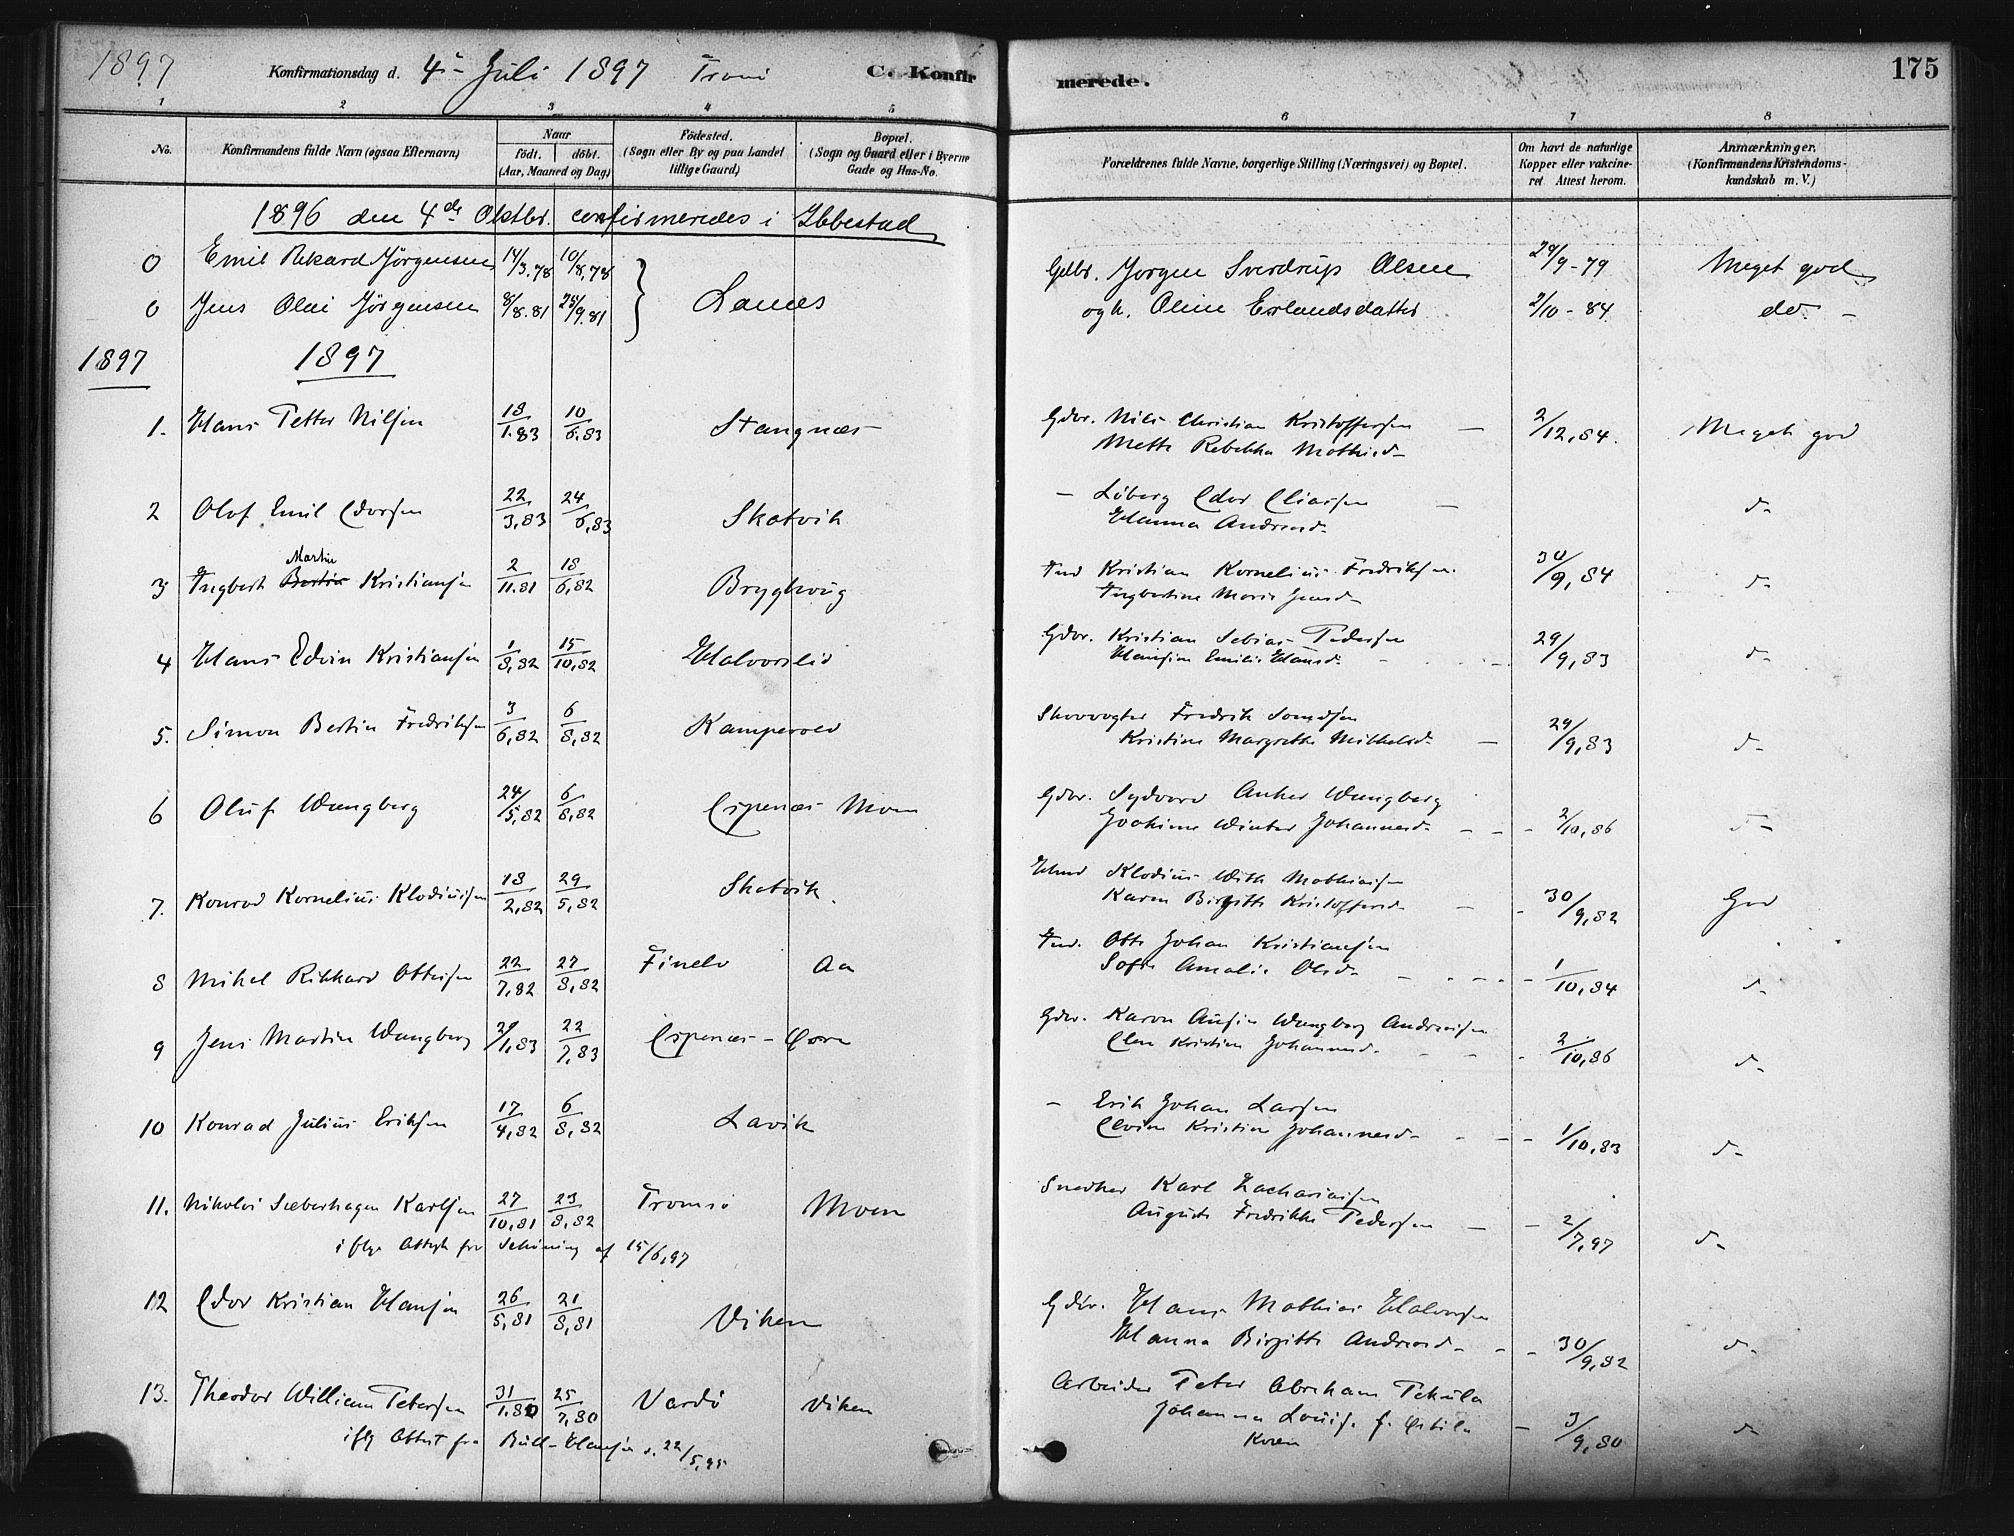 1897
Konfirmationsdag d. 4de Juli 1897
C. Konfirmerede.
175
1 2 3 4 5 6 7 8
No.
Konfirmandens fulde Navn (ogsaa Efternavn)
Naar
födt. | döbt.
(Aar, Maaned og Dag)
Födested.
(Sogn eller By og paa Landet tillige Gaard)
Bopæl.
(Sogn og Gaard eller i Byerne Gade og Hus-No.
Forældrenes fulde Navne, borgerlige Stilling (Næringsvei) og Bopæl.
Om havt de naturlige Kopper eller vakcineret Attest herom.
Anmærkninger.
(Konfirmandens Kristendomskundskab m. V.)
1896 den 4de Oktbr. confirmeredes i Ibbestad
0 Emil Rikard Jörgensen 14/3.78 10/8.78 Gdbr. Jörgen Sverdrup Olsen 29/9-79 Meget god
0 Jens Olai Jörgensen 8/8.81 25/9.81 Lanes ogh. Oline Erlandsdatter 2/10-84 do. -
1897 1897
1. Hans Petter Nilsen 18/1.83 10/6.83 Stangnæs Gdbr. Nils Christian Kristoffersen 2/12,84. Meget god
Mette Rebekka Mathisd-
2 Olof Emil Edorsen 22/3,83 24/6,83 Skatvik - Löberg Edor Eliassen d-
Hanna Andreasd-
3 Ingbert Martin Kristiansen 2/11.81 18/6,82 Bryghoug Ind Kristian Kornelius Fredriksen 30/9,84 d-
Ingbertine Marie Jensd-
4 Hans Edvin Kristiansen 1/8,82 15/10,82 Halvorslid Gdbr. Kristian Tobias Pedersen 29/9,83 d-
Hansine Emilie Hansd-
5. Simon Bertin Fredriksen 3/6,82 6/8,82 Kampevold Skovvogter Fredrik Simonsen 29/9,83 d-
Kristine Margrethe Mikkelsd-
6 Oluf Wangberg 24/5,82 6/8,82 Espenæs Moen Gdbr. Sydvard Anker Wangberg
Joakime Winter Johannesd- 2/10,86 d-
7. Konrad Kornelius Klodiussen 18/2,82 29/5,82 Skatvik Klodius With Mathiassen
Karen Birgitte Kristoffersd- 30/9,82 God
8 Mikal Rikkard Ottesen 22/7,82 27/8,82 Finelv Aa Ind. Otto Johan Kristiansen
Sofie Amalie Olsd- 1/10,84 d-
9 Jens Martin Wangberg 29/1,83 22/7,83 Espenæs - Gdbr. Karon Wangberg Andreassen
Elen Kristine Johannesd- 2/10,86 d-
10 Konrad Julius Eriksen 17/4,82 6/8,82 Lavik - Erik Johan Larsen
Elvine Kristine Johannesd- 1/10,83 d-
11. Nikolai Karlsen 27/10,81 23/8,82 Tromsö Moen Snedker Karl Zachariassen
Augusta Fredrikke Pedersen 2/7,97 d-
iflge Attest fra Schöning af 15/6,97
12 Edor Kristian Hansen 26/5,81 21/8,81 Viken Gdbr. Hans Mathias Halvorsen
Hanna Birgitte Andreasd- 30/9,82 d-
13. Theodor William Petersen 31/1.80 25/7,80 Vardö Viken Arbeider Peter Abraham Pekula
Johanna Louise f. 3/9,80 d-
iflg Attest fra Bull-Hansen d. 22/5,95 Kvæn